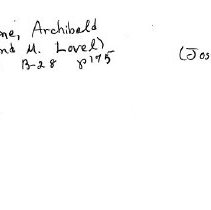 ne, Archibald
nd M. Lovel)
B-28 p175
(Jos